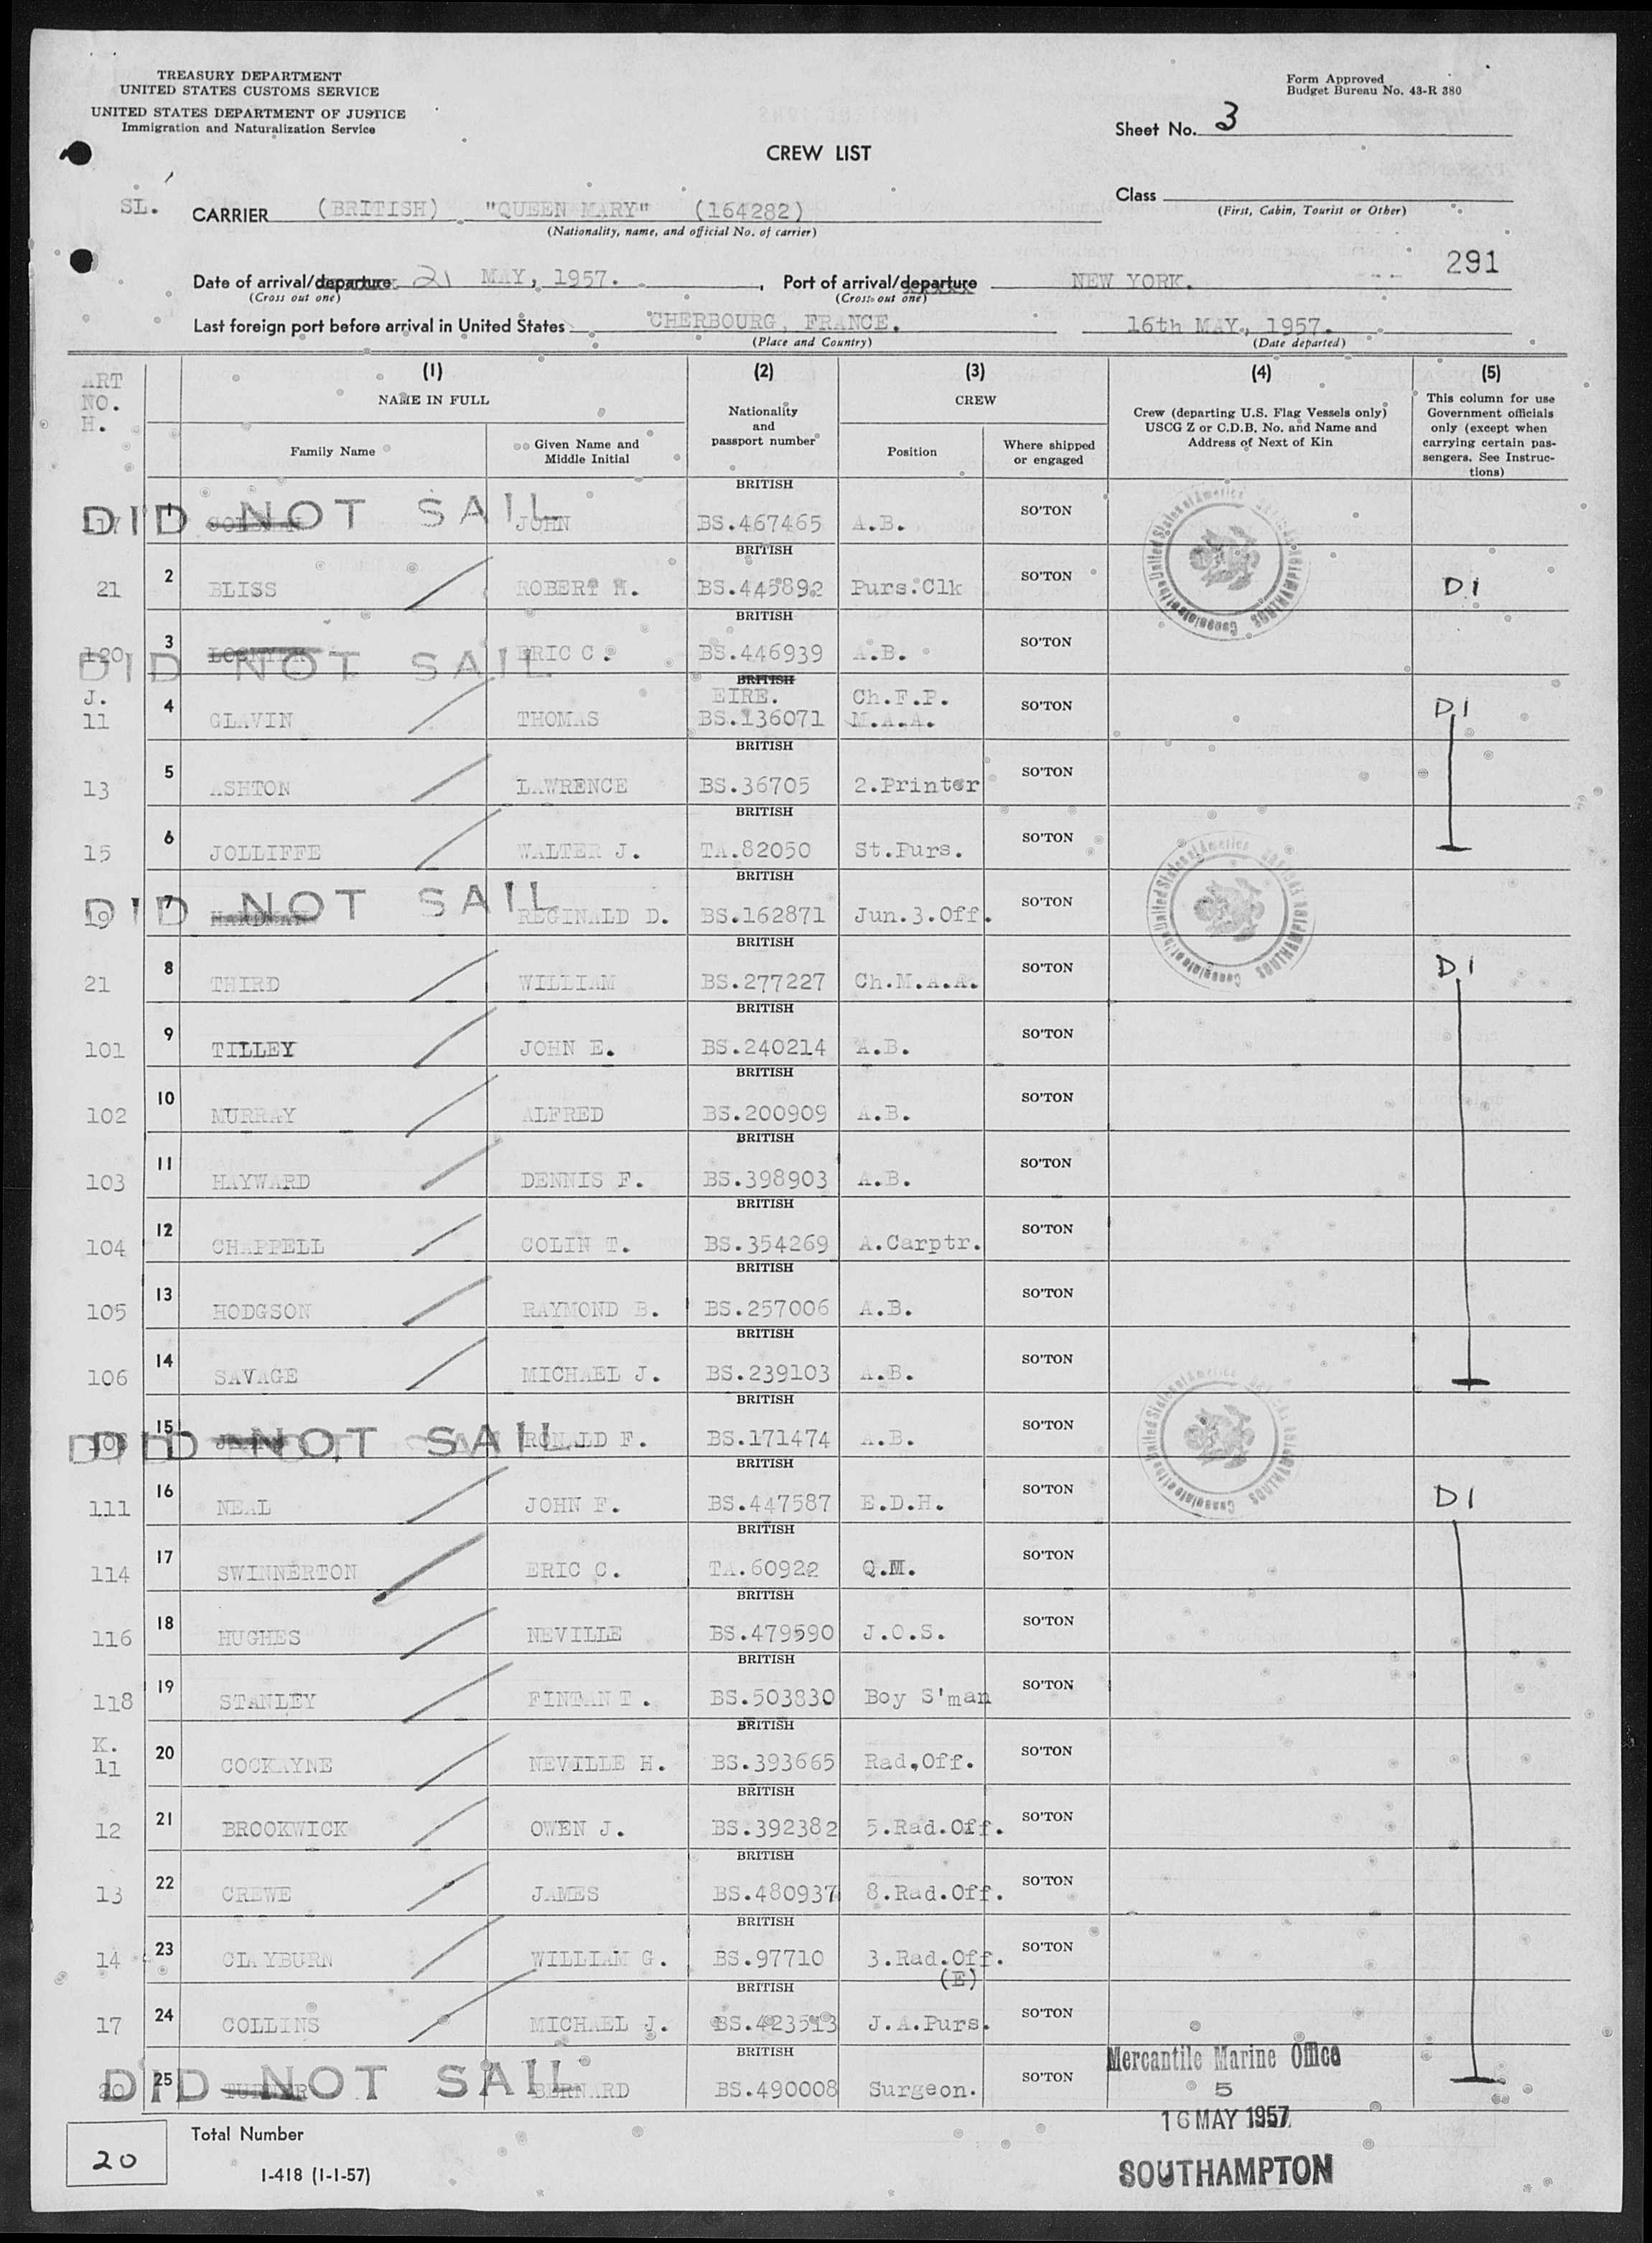 TREASURY DEPARTMENT
UNITED STATES CUSTOMS SERVICE
UNITED STATES DEPARTMENT OF JUSTICE
Immigration and Naturalization Service
Form Approved
Budget Bureau No. 43-R 380
Sheet No. 3
CREW LIST
Class
(First, Cabin, Tourist or Other)
SL.
CARRIER (BRITISH) "QUEEN MARY" (164282)
(Nationality, name, and official No. of carrier)
291
Date of arrival/departure 21 MAY, 1957. , Port of arrival/departure NEW YORK.
(Cross out one) (Cross out one)
Last foreign port before arrival in United States CHERBOURG, FRANCE. 16th MAY, 1957.
(Place and Country) (Date departed)
ART
NO.
H.
(1) (2) (3) (4) (5)
NAME IN FULL
Family Name
Given Name and
Middle Initial
Nationality
and
passport number
CREW
Position
Where shipped
or engaged
Crew (departing U.S. Flag Vessels only)
USCG Z or C.D.B. No. and Name and
Address of Next of Kin
This column for use
Government officials
only (except when
carrying certain pas-
sengers. See Instruc-
tions)
BRITISH
117 1 DID NOT SAIL JOHN BS.467465 A.B. SO'TON
BRITISH
21 2 BLISS ROBERT H. BS.445892 Purs.Clk SO'TON D1
BRITISH
120 3 DID NOT SAIL ERIC C. BS.446939 A.B. SO'TON
BRITISH
J. EIRE. Ch.F.P.
11 4 GLAVIN THOMAS BS.136071 M.A.A. SO'TON D1
BRITISH
13 5 ASHTON LAWRENCE BS.36705 2.Printer SO'TON
BRITISH
15 6 JOLLIFFE WALTER J. TA.82050 St.Purs. SO'TON
BRITISH
19 7 HARDMAN DID NOT SAIL REGINALD D. BS.162871 Jun.3.Off. SO'TON
BRITISH
21 8 THIRD WILLIAM BS.277227 Ch.M.A.A. SO'TON D1
BRITISH
101 9 TILLEY JOHN E. BS.240214 A.B. SO'TON
BRITISH
102 10 MURRAY ALFRED BS.200909 A.B. SO'TON
BRITISH
103 11 HAYWARD DENNIS F. BS.398903 A.B. SO'TON
BRITISH
104 12 CHAPPELL COLIN T. BS.354269 A.Carptr. SO'TON
BRITISH
105 13 HODGSON RAYMOND B. BS.257006 A.B. SO'TON
BRITISH
106 14 SAVAGE MICHAEL J. BS.239103 A.B. SO'TON
BRITISH
108 15 DID NOT SAIL RONALD F. BS.171474 A.B. SO'TON
BRITISH
111 16 NEAL JOHN F. BS.447587 E.D.H. SO'TON D1
BRITISH
114 17 SWINNERTON ERIC C. TA.60922 Q.M. SO'TON
BRITISH
116 18 HUGHES NEVILLE BS.479590 J.O.S. SO'TON
BRITISH
118 19 STANLEY FINTAN T. BS.503830 Boy S'man SO'TON
BRITISH
K.
11 20 COCKAYNE NEVILLE H. BS.393665 Rad.Off. SO'TON
BRITISH
12 21 BROOKWICK OWEN J. BS.392382 5.Rad.Off. SO'TON
BRITISH
13 22 CREWE JAMES BS.480937 8.Rad.Off. SO'TON
BRITISH
14 23 CLAYBURN WILLIAM G. BS.97710 3.Rad.Off. SO'TON
(E)
BRITISH
17 24 COLLINS MICHAEL J. BS.423513 J.A.Purs. SO'TON
BRITISH
20 25 DID NOT SAIL BERNARD BS.490008 Surgeon. SO'TON
Mercantile Marine Office
5
16 MAY 1957
SOUTHAMPTON
20
Total Number
I-418 (1-1-57)